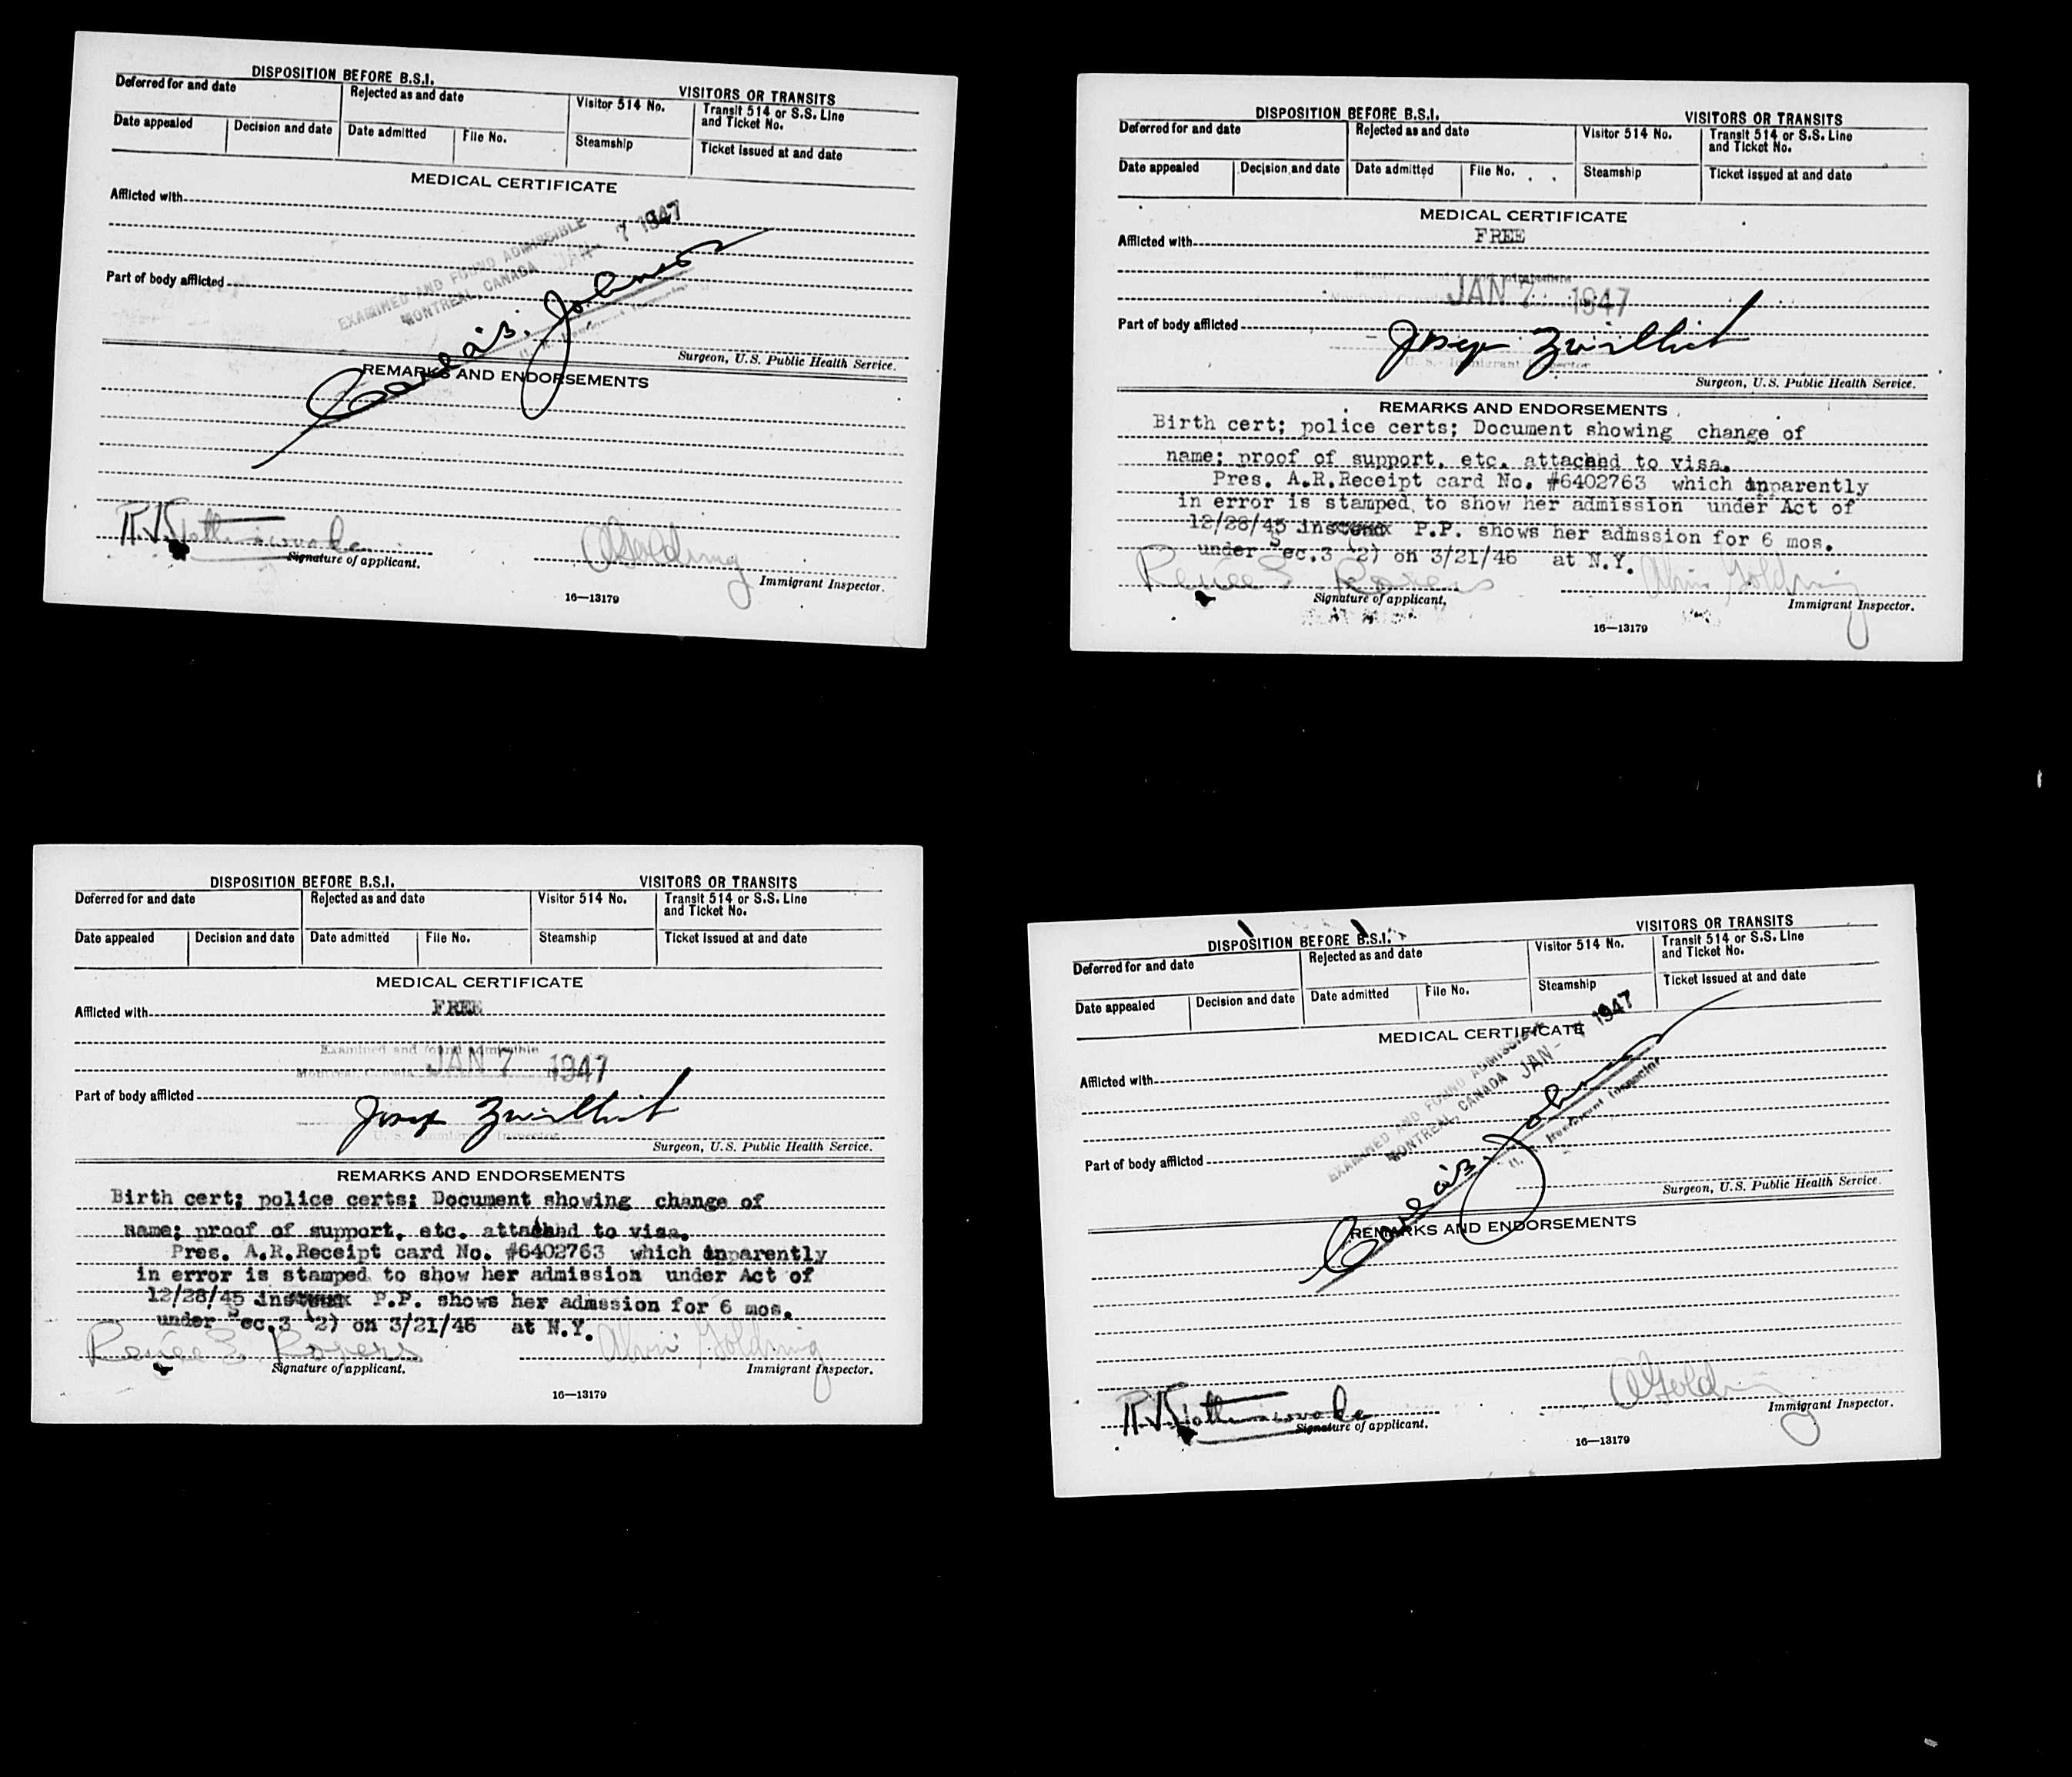 DISPOSITION BEFORE B.S.I. VISITORS OR TRANSITS
Deferred for and date Rejected as and date Visitor 514 No. Transit 514 or S.S. Line
and Ticket No.
Date appealed Decision and date Date admitted File No. Steamship Ticket issued at and date
MEDICAL CERTIFICATE
Afflicted with
EXAMINED AND FOUND ADMISSIBLE
MONTREAL, CANADA JAN - 7 1947
Part of body afflicted
Surgeon, U.S. Public Health Service.
REMARKS AND ENDORSEMENTS
Signature of applicant.
Immigrant Inspector.
16—13179
DISPOSITION BEFORE B.S.I. VISITORS OR TRANSITS
Deferred for and date Rejected as and date Visitor 514 No. Transit 514 or S.S. Line
and Ticket No.
Date appealed Decision and date Date admitted File No. Steamship Ticket issued at and date
MEDICAL CERTIFICATE
Afflicted with FREE
JAN 7 1947
Part of body afflicted
U. S. Immigrant Inspector
Surgeon, U.S. Public Health Service.
REMARKS AND ENDORSEMENTS
Birth cert; police certs; Document showing change of
name; proof of support, etc. attached to visa.
Pres. A.R.Receipt card No. #6402763 which apparently
in error is stamped to show her admission under Act of
12/28/45 P.P. shows her admssion for 6 mos.
under Sec.3 (2) on 3/21/46 at N.Y.
Renée E. Rogers Alvin Golding
Signature of applicant.
Immigrant Inspector.
16—13179
DISPOSITION BEFORE B.S.I. VISITORS OR TRANSITS
Deferred for and date Rejected as and date Visitor 514 No. Transit 514 or S.S. Line
and Ticket No.
Date appealed Decision and date Date admitted File No. Steamship Ticket issued at and date
MEDICAL CERTIFICATE
Afflicted with FREE
Examined and found admissible
Montreal, Canada JAN 7 1947
Part of body afflicted
U. S. Immigrant Inspector
Surgeon, U.S. Public Health Service.
REMARKS AND ENDORSEMENTS
Birth cert; police certs; Document showing change of
name; proof of support, etc. attached to visa.
Pres. A.R.Receipt card No. #6402763 which apparently
in error is stamped to show her admission under Act of
12/28/45 P.P. shows her admssion for 6 mos.
under Sec.3 (2) on 3/21/46 at N.Y.
Renée E. Rogers Alvin Golding
Signature of applicant.
Immigrant Inspector.
16—13179
DISPOSITION BEFORE B.S.I. VISITORS OR TRANSITS
Deferred for and date Rejected as and date Visitor 514 No. Transit 514 or S.S. Line
and Ticket No.
Date appealed Decision and date Date admitted File No. Steamship Ticket issued at and date
MEDICAL CERTIFICATE
Afflicted with
EXAMINED AND FOUND ADMISSIBLE
MONTREAL, CANADA JAN - 1947
U. S. Immigrant Inspector
Part of body afflicted
Surgeon, U.S. Public Health Service.
REMARKS AND ENDORSEMENTS
Signature of applicant.
Immigrant Inspector.
16—13179